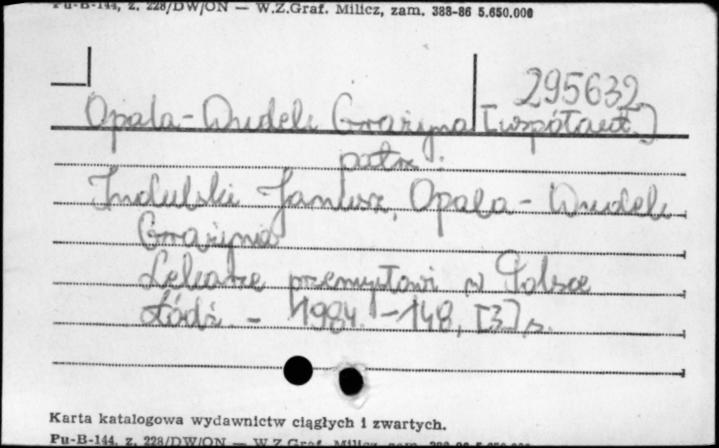 Pu-B-144, z. 228/DW/ON — W.Z.Graf. Milicz, zam. 388-86 5.650.000
295632
Opala-Wudel Grażyna [współaut.]
patrz:
Indulski Janusz, Opala-Wudel
Grażyna
Lekarze przemysłowi w Polsce
Łódź. - 1984. - 148, [3] s.
Karta katalogowa wydawnictw ciągłych i zwartych.
Pu-B-144, z. 228/DW/ON — W.Z.Graf. Milicz, zam. 388-86 5.650.000